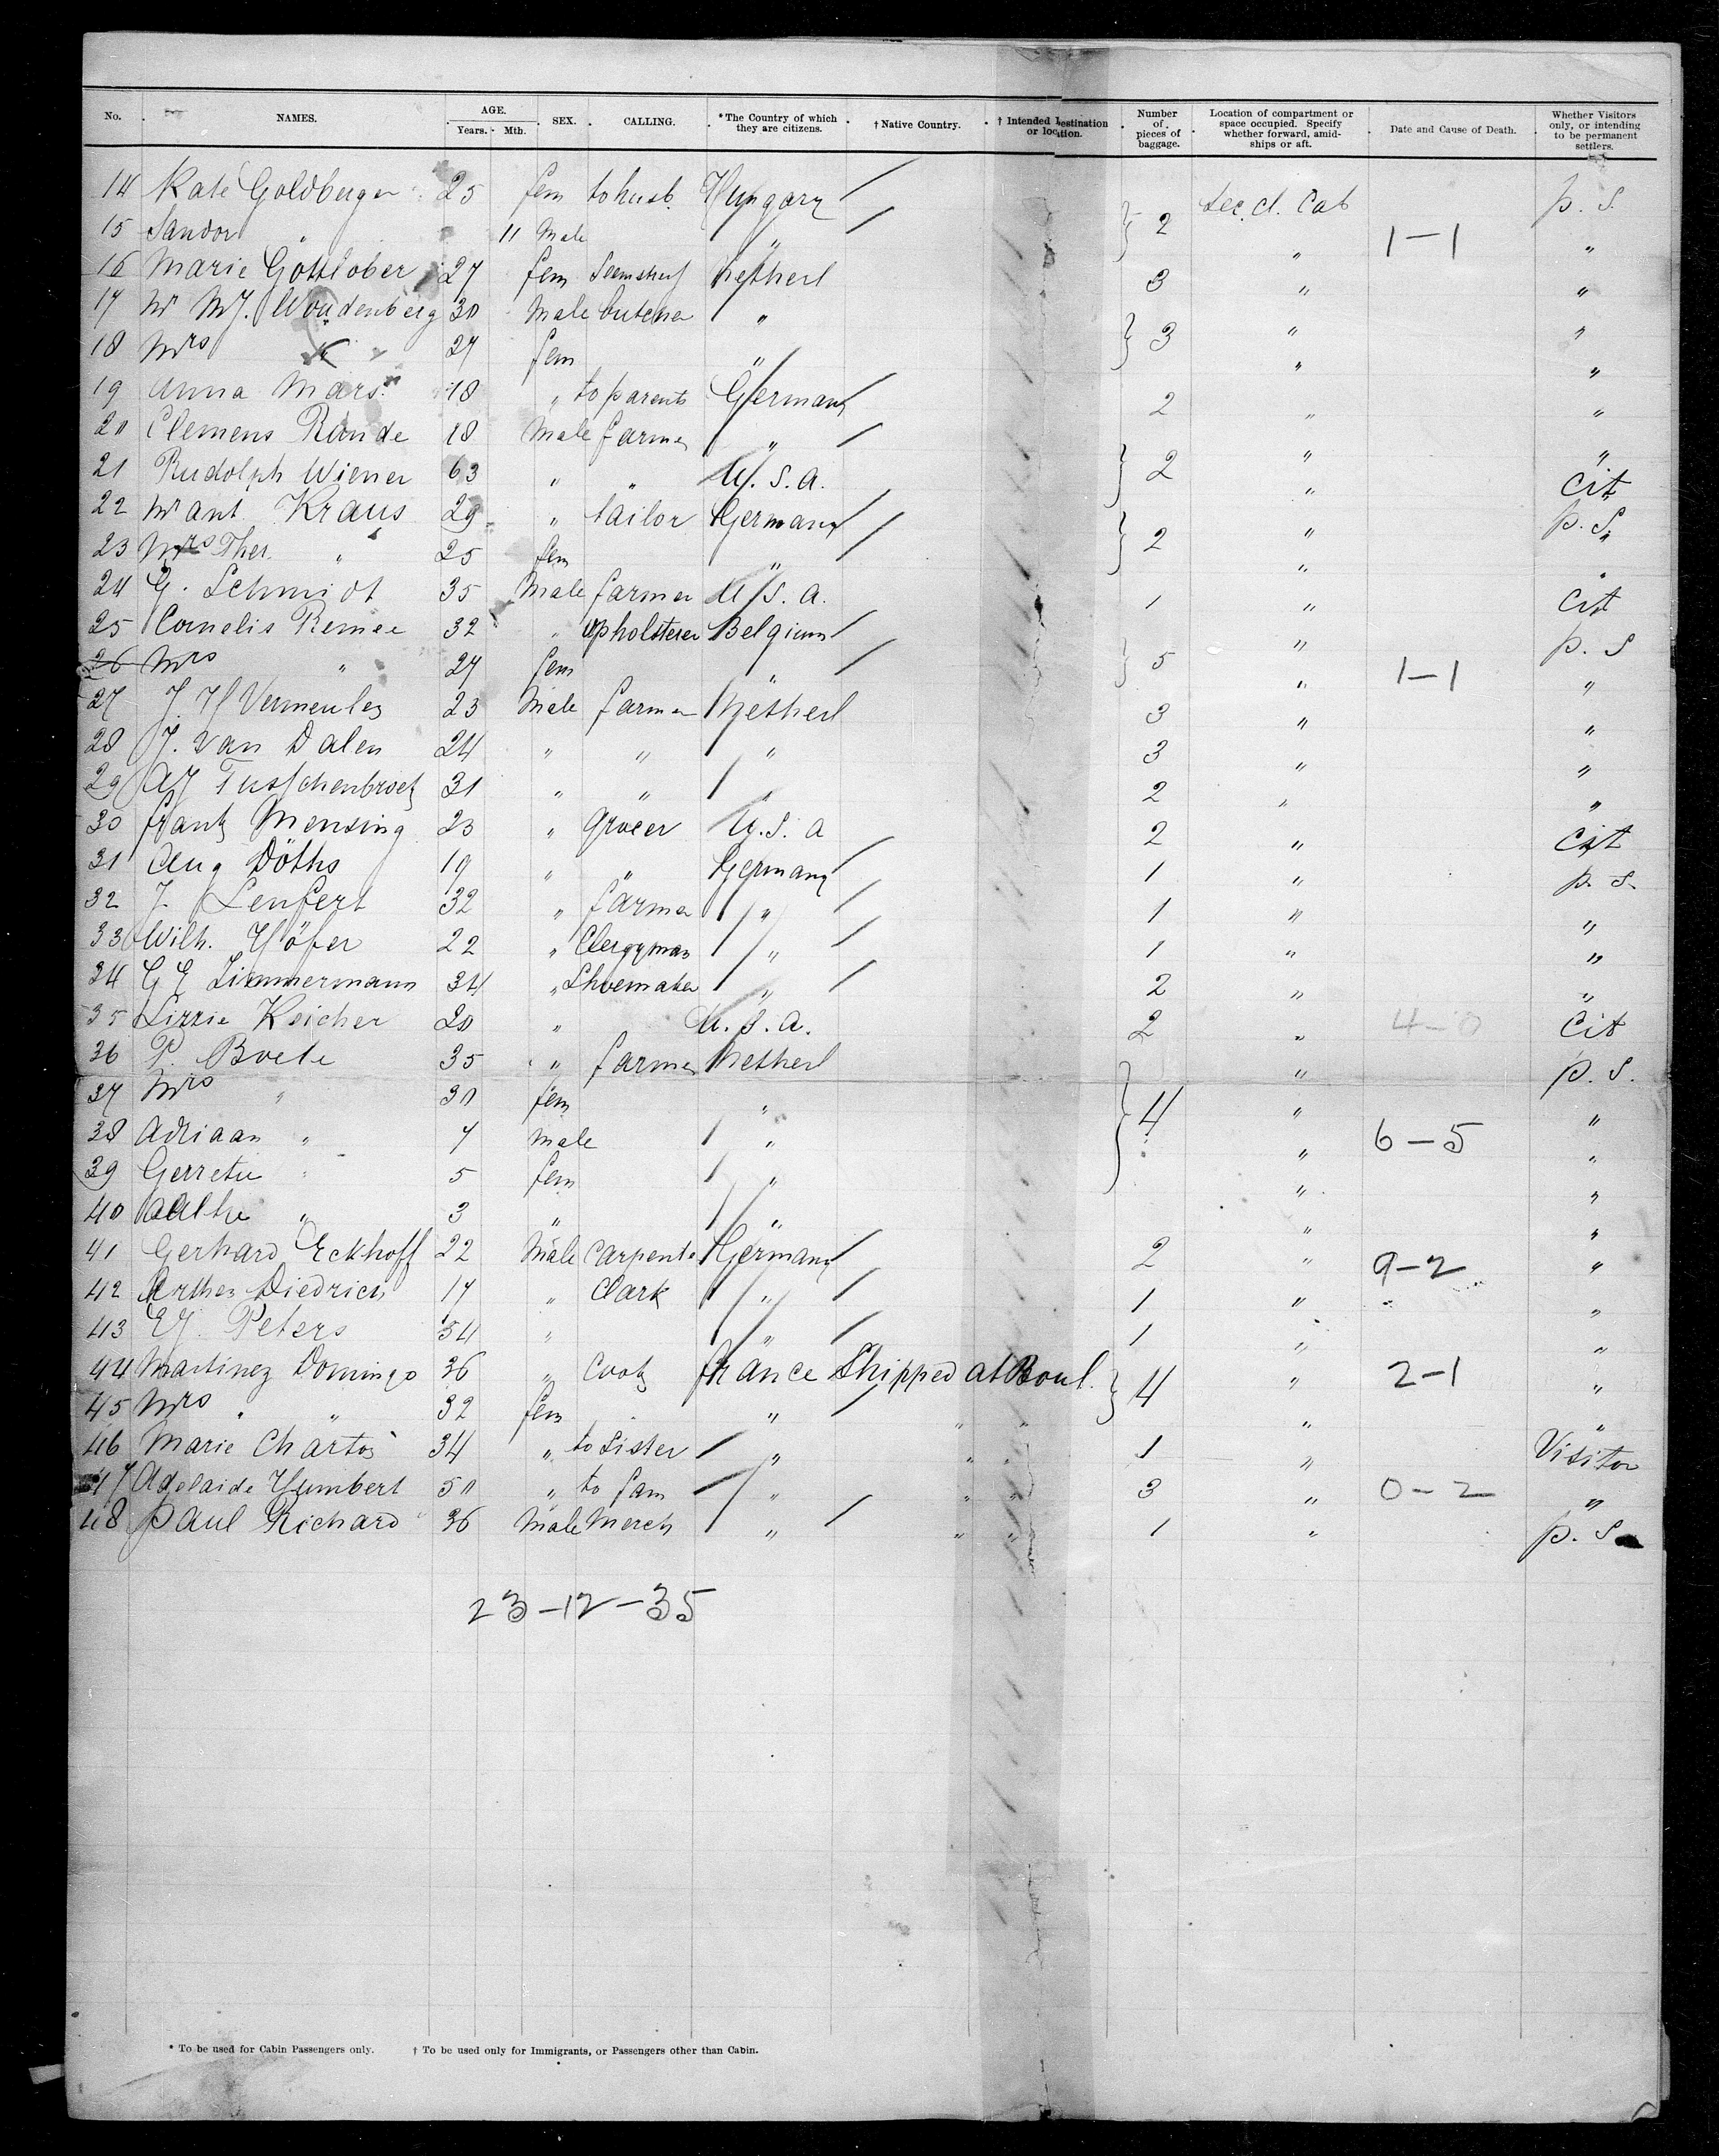 No. NAMES. AGE. Years. Mth. SEX. CALLING. *The Country of which they are citizens. †Native Country. † Intended Destination or location. Number of pieces of baggage. Location of compartment or space occupied. Specify whether forward, amidships or aft. Date and Cause of Death. Whether Visitors only, or intending to be permanent settlers.
14 Kate Goldberger 25 fem to husb. Hungary / sec. cl. Cab p. S.
15 Sandor " 11 Male " / } 2 " 1-1 "
16 Marie Gottlober 27 fem Netherl 3 " "
17 Mr MJ. Woudenberg 30 Male butcher " " "
18 Mrs " 27 fem " } 3 " "
19 Anna Mars 18 " to parents Germany / 2 " "
20 Clemens Rande 18 Male farmer " / " "
21 Rudolph Wiener 63 " " U.S.a. } 2 " Cit
22 Mr ant Kraus 29 " tailor Germany / " p. S.
23 Mrs Ther. " 25 fem " / } 2 " "
24 G. Schmidt 35 Male farmer U.S.a. 1 " Cit
25 Cornelis Remee 32 " upholsterer Belgium / " p. S
26 Mrs " 27 fem " / } 5 " 1-1 "
27 J. H Vermeulen 23 Male farmer Netherl 3 " "
28 J. van Dalen 24 " " " 3 " "
29 AJ Tusschenbroek 31 " " " 2 " "
30 frantz Mensing 23 " grocer U.S.a 2 " Cit
31 Aug Döths 19 " " Germany / 1 " p. S.
32 J. Lenfert 32 " farmer " / 1 " "
33 Wilh. Höfer 22 " Clergyman " / 1 " "
34 G E Zimmermann 34 " Shoemaker " / 2 " "
35 Lizzie Reicher 20 " U.S.a. 2 " 4-0 Cit
36 P. Boele 35 " farmer Netherl " p. S.
37 Mrs " 30 fem " } 4 " "
38 Adriaan " 7 Male " " 6-5 "
39 Gerretie " 5 fem " " "
40 " 3 " " " "
41 Gerhard Eckhoff 22 Male Carpenter Germany / 2 " 9-2 "
42 Arther Diedrich 17 " Clark " / 1 " "
43 EJ. Peters 54 " " / 1 " "
44 Martinez Domingo 36 " Cook france Shipped at Boul. " 2-1 "
45 Mrs " " 32 fem " / " " } 4 " "
46 Marie Chartos 34 " to Sister " " " 1 " Visitor
47 Adelaide Humbert 50 " to fam " " " 3 " 0-2 "
48 Paul Richard 36 Male Merch " / " " 1 " p. S
23-12-35
* To be used for Cabin Passengers only. † To be used only for Immigrants, or Passengers other than Cabin.